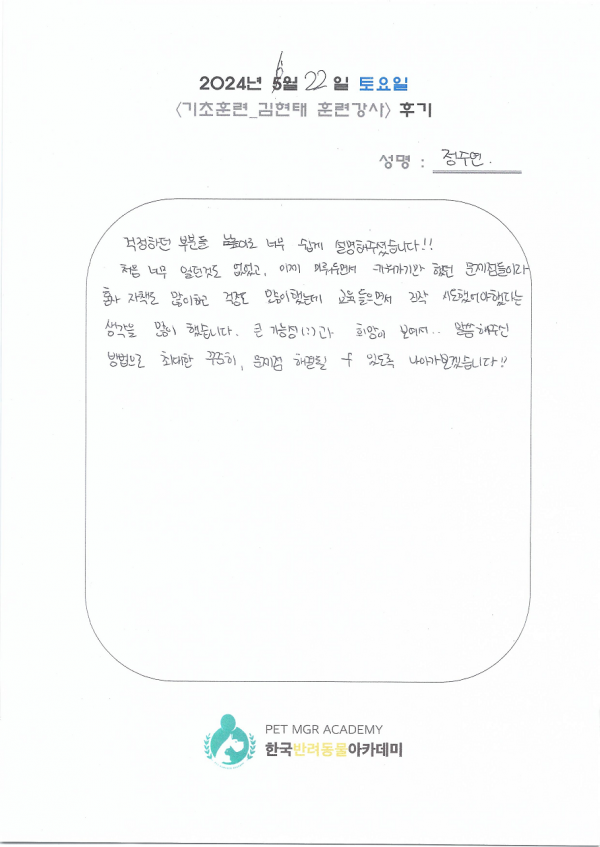 2024년 6월 22일 토요일
<기초훈련_김현태 훈련강사> 후기
성명 : 정수연.
걱정하던 부분들 너무 쉽게 설명해주셨습니다!!
처음 너무 없었고, 이제 미루면서 키워가기만 했던 문제점들이라
혼자 자책도 많이하고 걱정도 많이했는데 교육들으면서 진작 시도했어야했다는
생각을 많이 했습니다. 큰 가능성(?)과 희망이 보여서.. 말씀해주신
방법으로 최대한 꾸준히, 문제점 해결될 수 있도록 나아가보겠습니다!!
PET MGR ACADEMY
한국반려동물아카데미